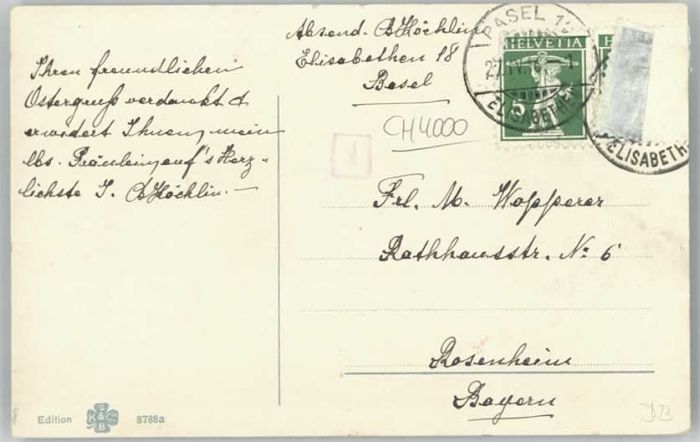 Ihren freundlichen
Ostergruß verdankt &
erwidert Ihnen, mein
lbs. Fräulein, auf's Herz-
lichste J. B Höchlin. —
Absend. B Höchlin
Elisabethen 18
Basel
CH 4000
BASEL 1
HELVETIA
27.IV.
5
ELISABETHEN
ELISABETH
Frl. M. Wopperer
Rathhausstr. No 6
Rosenheim
Bayern
Edition
K & Co
B
8788a
JB